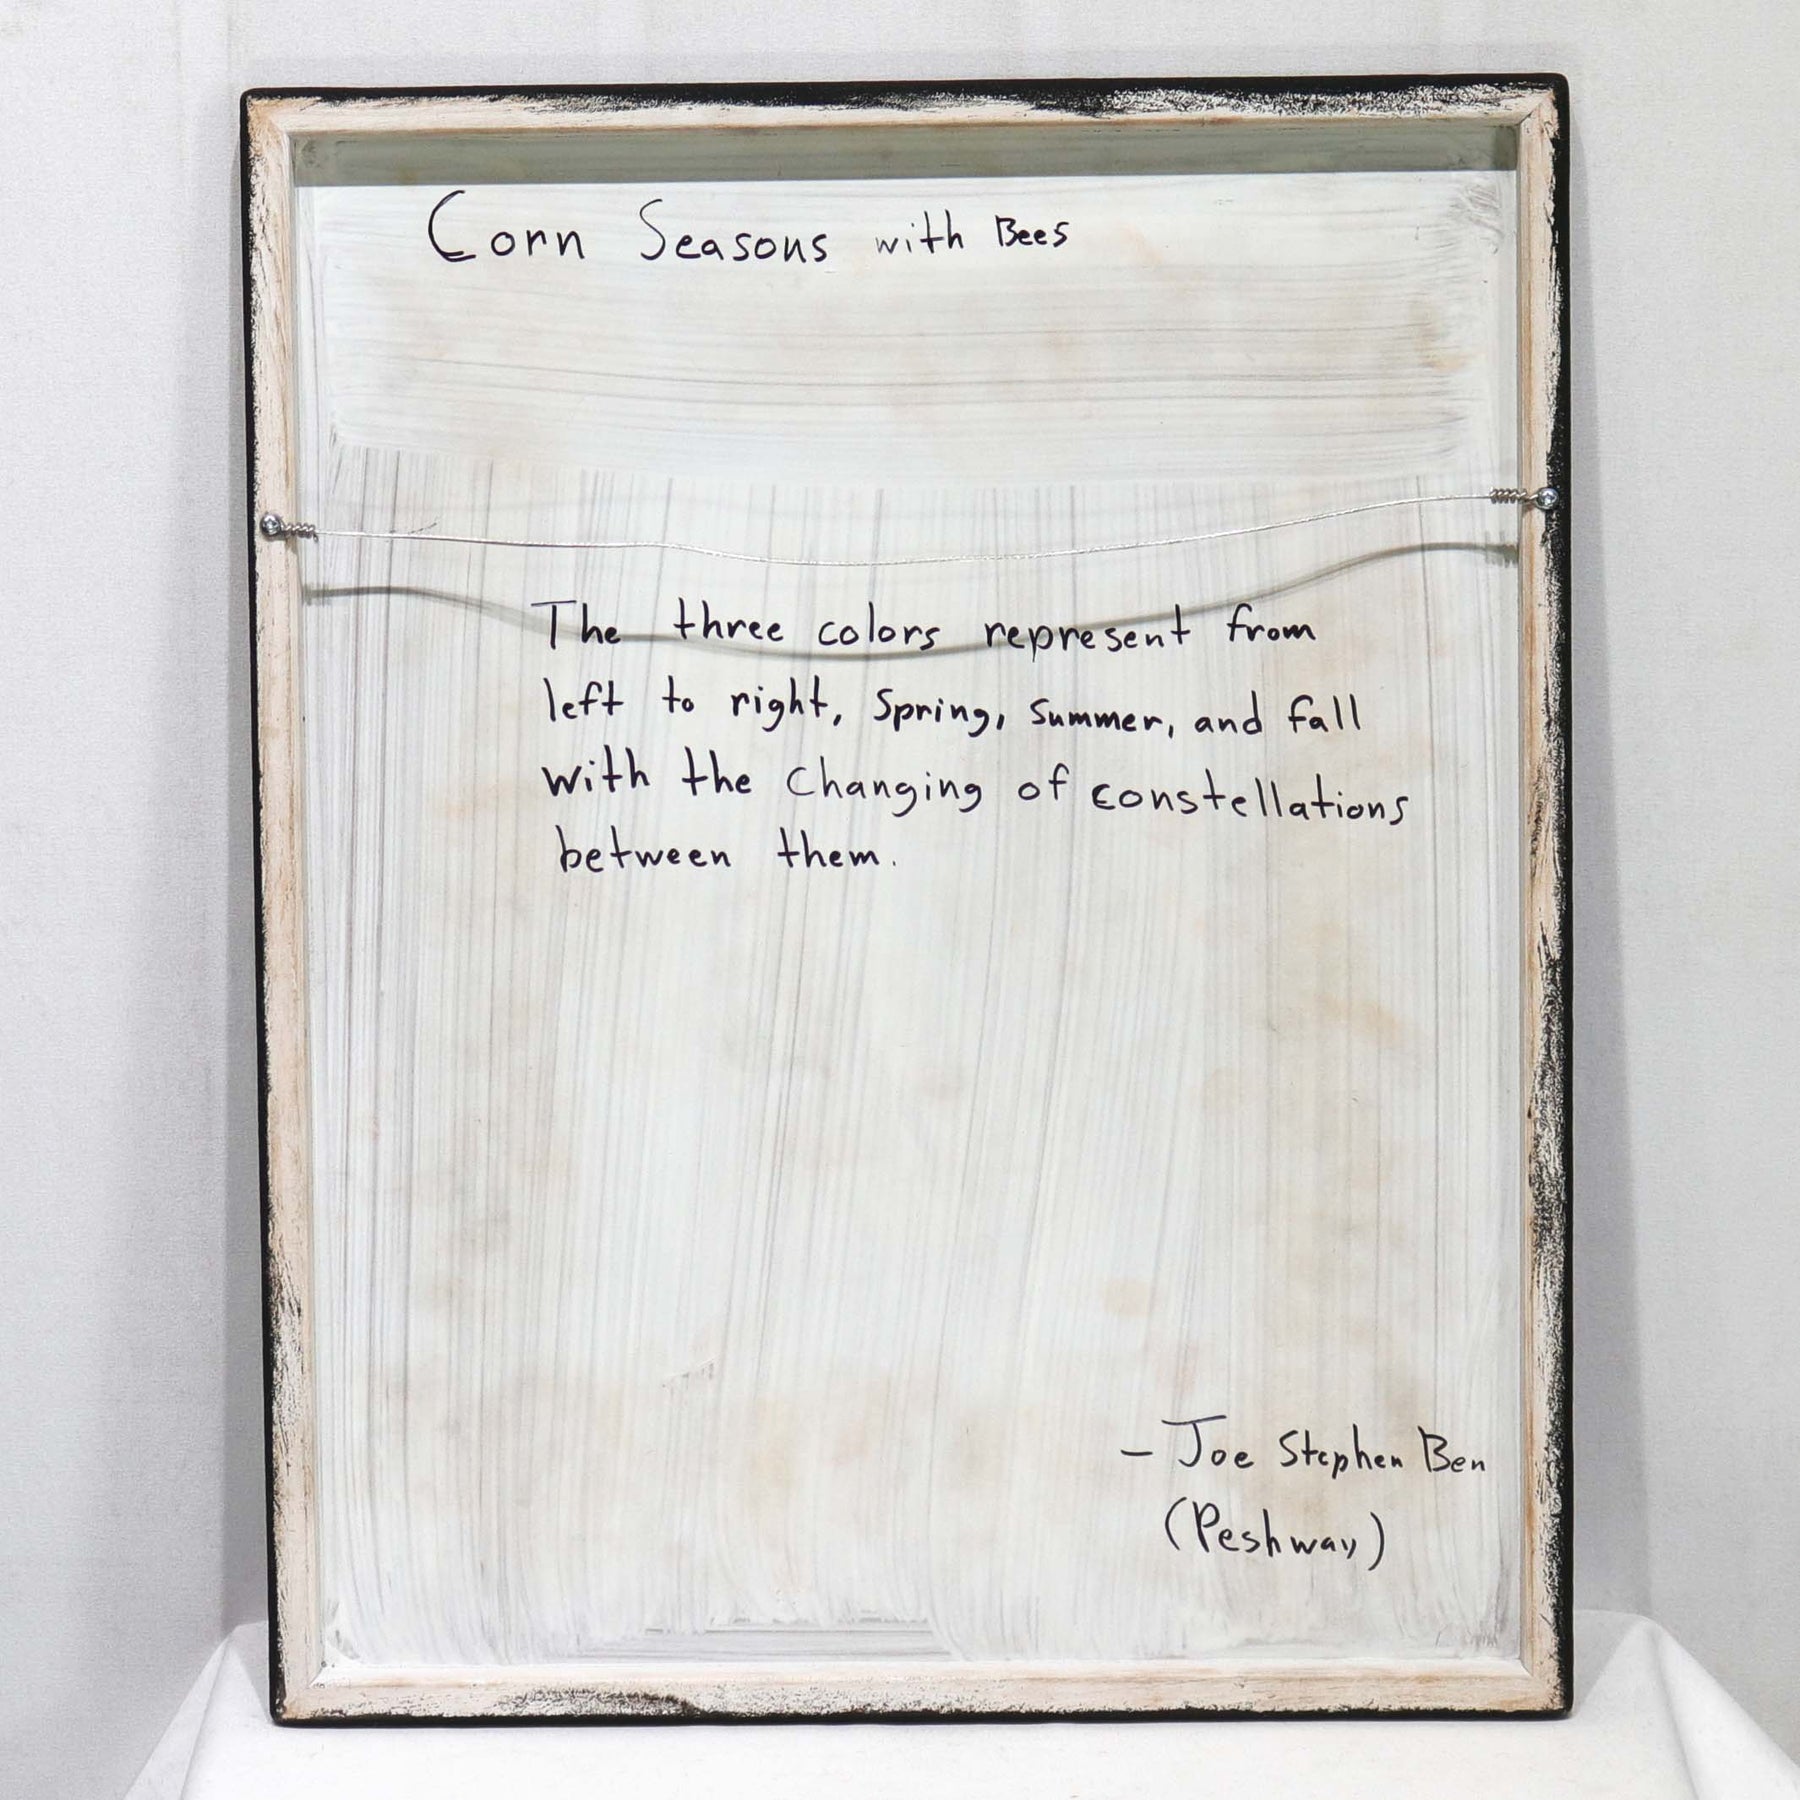 Corn Seasons with Bees
The three colors represent from
left to right, Spring, Summer, and fall
with the Changing of constellations
between them.
- Joe Stephen Ben
(Peshway)